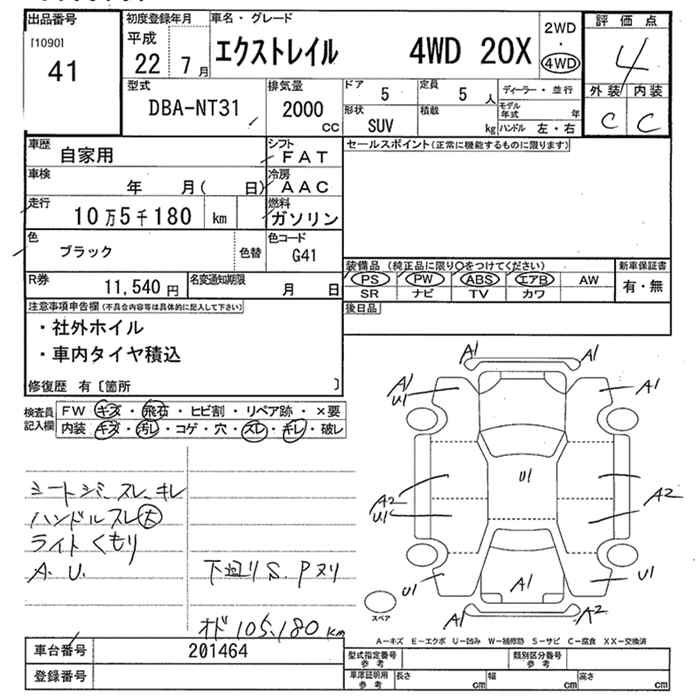 出品番号 初度登録年月 車名・グレード 評価点
[1090] 平成 2WD
41 22 7月 エクストレイル 4WD 20X ・ 4
4WD
型式 排気量 ドア 5 定員 5人 ディーラー・並行 外装 内装
DBA-NT31 2000cc 形状 SUV 積載 kg モデル年式 年 C C
ハンドル 左・右
車歴 自家用 シフト FAT セールスポイント(正常に機能するものに限ります)
車検 年 月( 日) 冷房 AAC
走行 10万5千180 km 燃料 ガソリン
色 ブラック 色替 色コード G41
装備品 (純正品に限り○をつけてください) 新車保証書
R券 11,540円 名変通知期限 月 日 PS PW ABS エアB AW 有・無
SR ナビ TV カワ
注意事項申告欄(不具合内容等は具体的に記入して下さい) 後日品
・社外ホイル
・車内タイヤ積込
修復歴 有〔箇所 〕
検査員記入欄 FW キズ・飛石・ヒビ割・リペア跡・×要
内装 キズ・汚レ・コゲ・穴・スレ・キレ・破レ
A1 A1
A1 U1 A1
U1
A2 U1 A2
U1 A1 U1
A1 A2
スレ、キレ
ハンドルスレ大
ライトくもり
A. U. 下廻りS. Pヌリ
スペア
オド 105,180 km
A－キズ E－エクボ U－凹み W－補修跡 S－サビ C－腐食 XX－交換済
車台番号 201464 型式指定番号 参考 類別区分番号 参考
登録番号 車庫証明用 参考 長さ cm 幅 cm 高さ cm